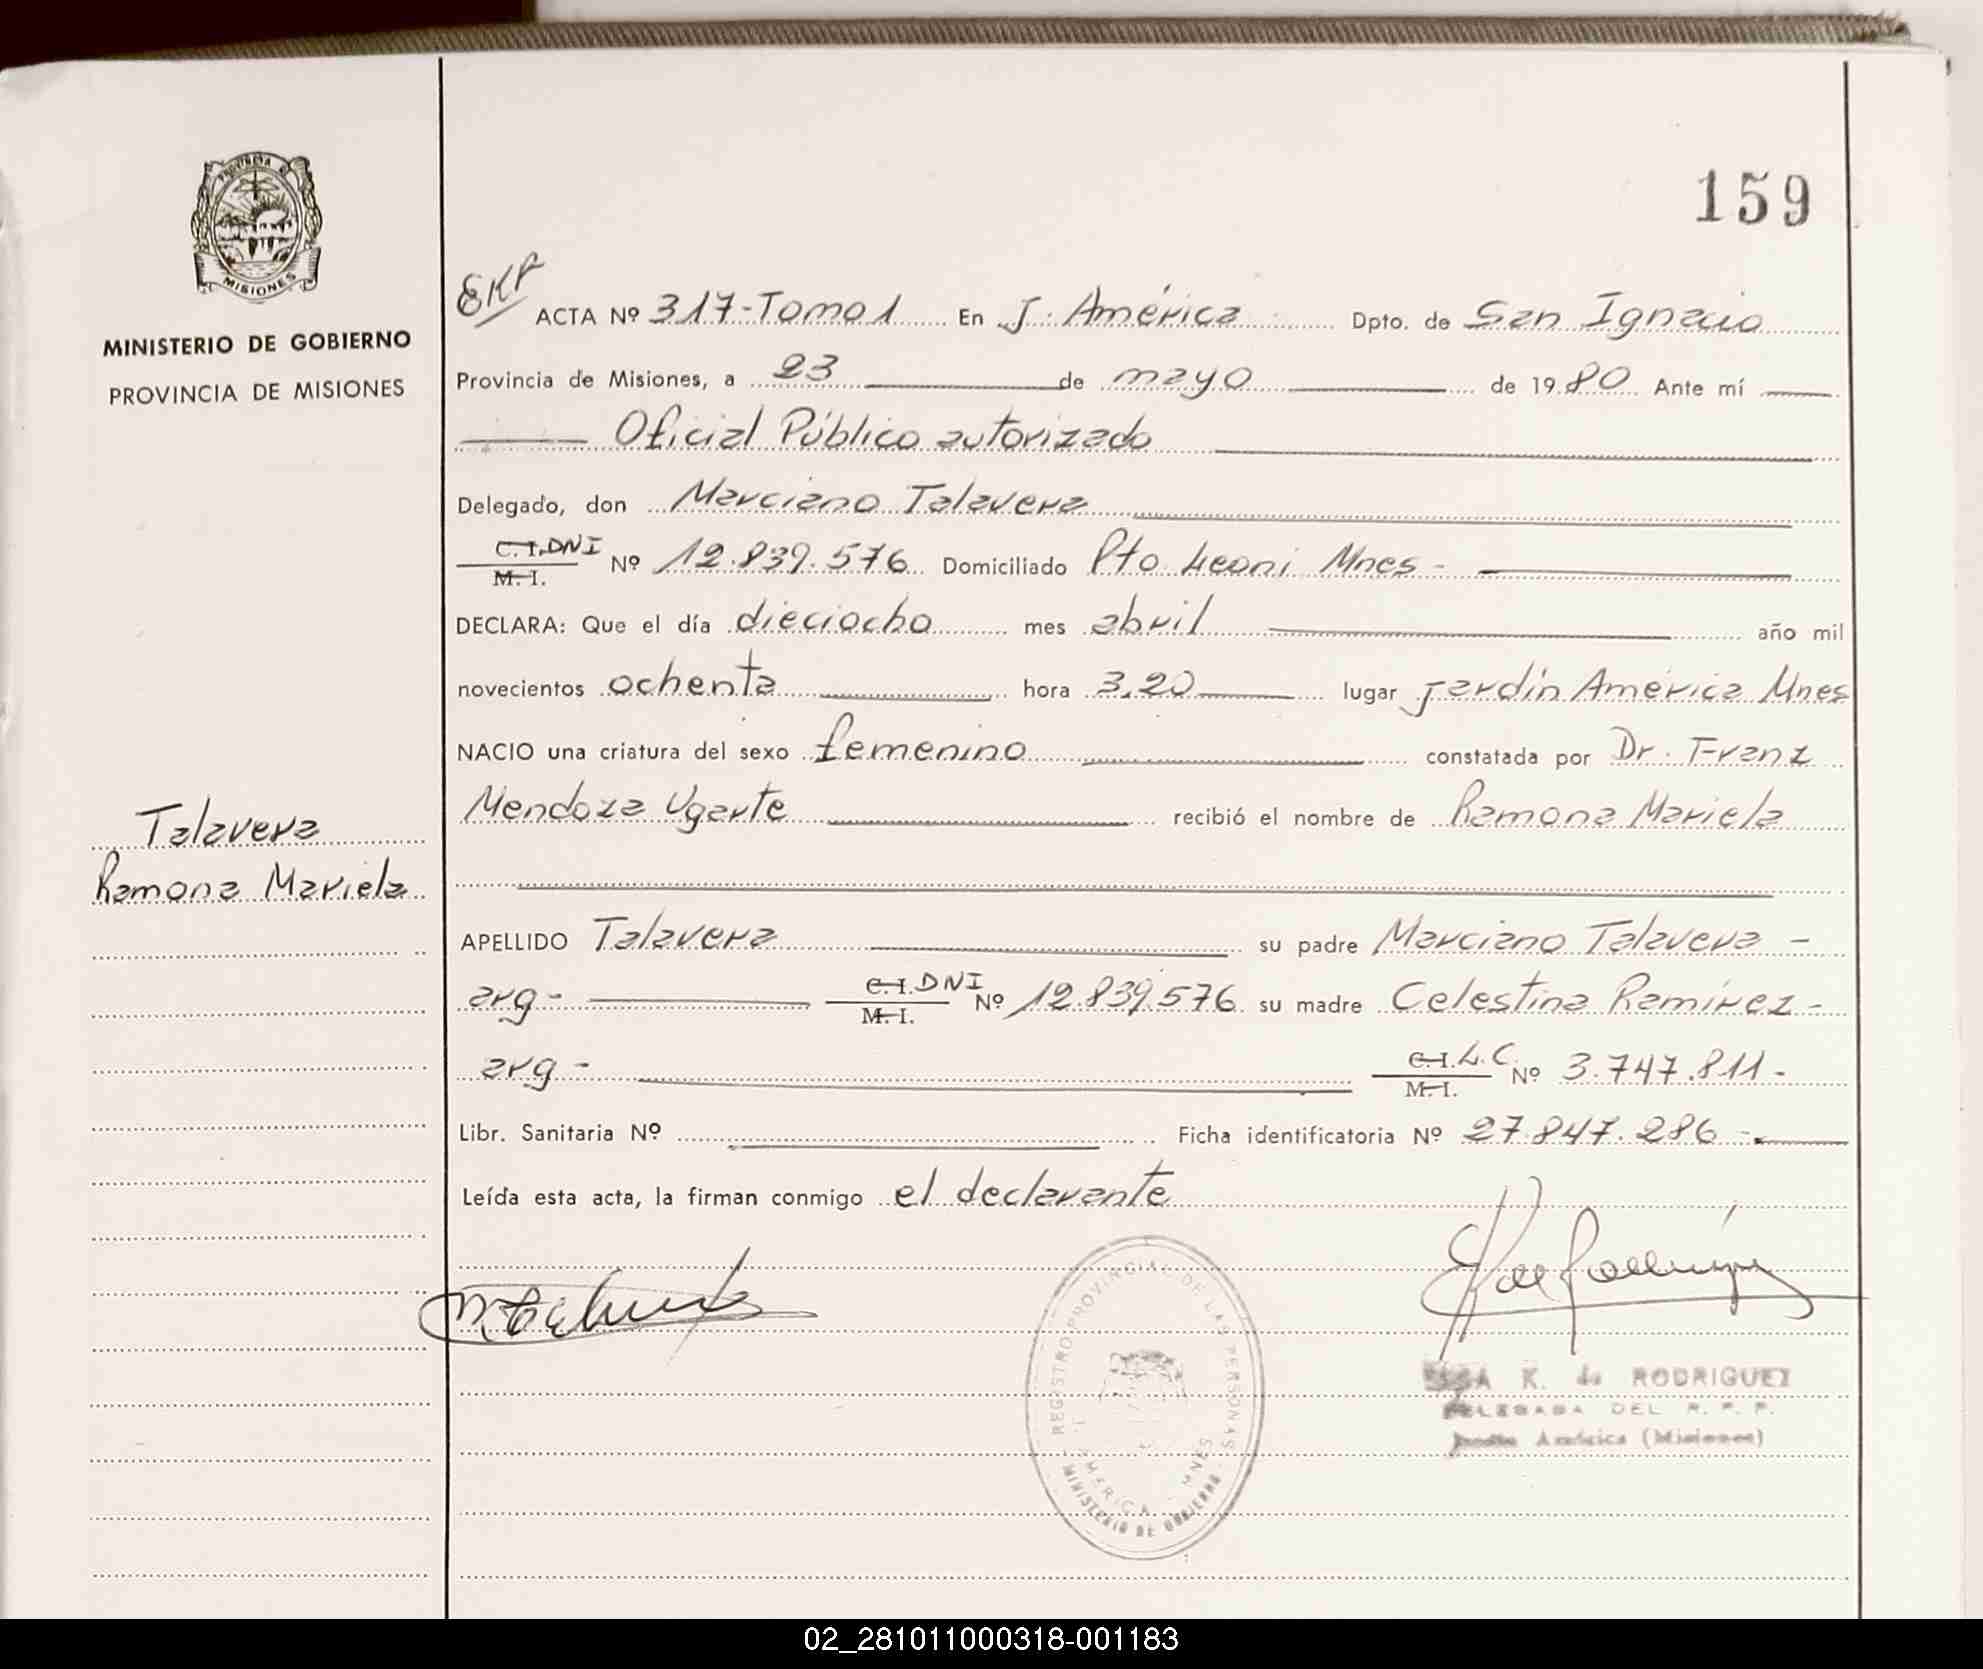 159
PROVINCIA DE
MISIONES
MINISTERIO DE GOBIERNO
PROVINCIA DE MISIONES
Talavera
Ramona Mariela
EKP
ACTA Nº 317-Tomo 1 En J. América Dpto. de San Ignacio
Provincia de Misiones, a 23 de mayo de 1980 Ante mí
Oficial Público autorizado
Delegado, don Marciano Talavera
C.I. DNI
M.I. Nº 12.839.576 Domiciliado Pto Leoni Mnes -
DECLARA: Que el día dieciocho mes abril año mil
novecientos ochenta hora 3,20 lugar Jardín América Mnes
NACIO una criatura del sexo femenino constatada por Dr. Franz
Mendoza Ugarte recibió el nombre de Ramona Mariela
APELLIDO Talavera su padre Marciano Talavera -
arg - C.I. DNI
M.I. Nº 12.839.576 su madre Celestina Ramírez -
arg - C.I. L.C.
M.I. Nº 3.747.811 -
Libr. Sanitaria Nº Ficha identificatoria Nº 27.847.286 -
Leída esta acta, la firman conmigo el declarante
REGISTRO PROVINCIAL DE LAS PERSONAS
J. AMERICA - MNES
MINISTERIO DE GOBIERNO
K. de RODRIGUEZ
DELEGADA DEL R. P. P.
Jardín América (Misiones)
02_281011000318-001183